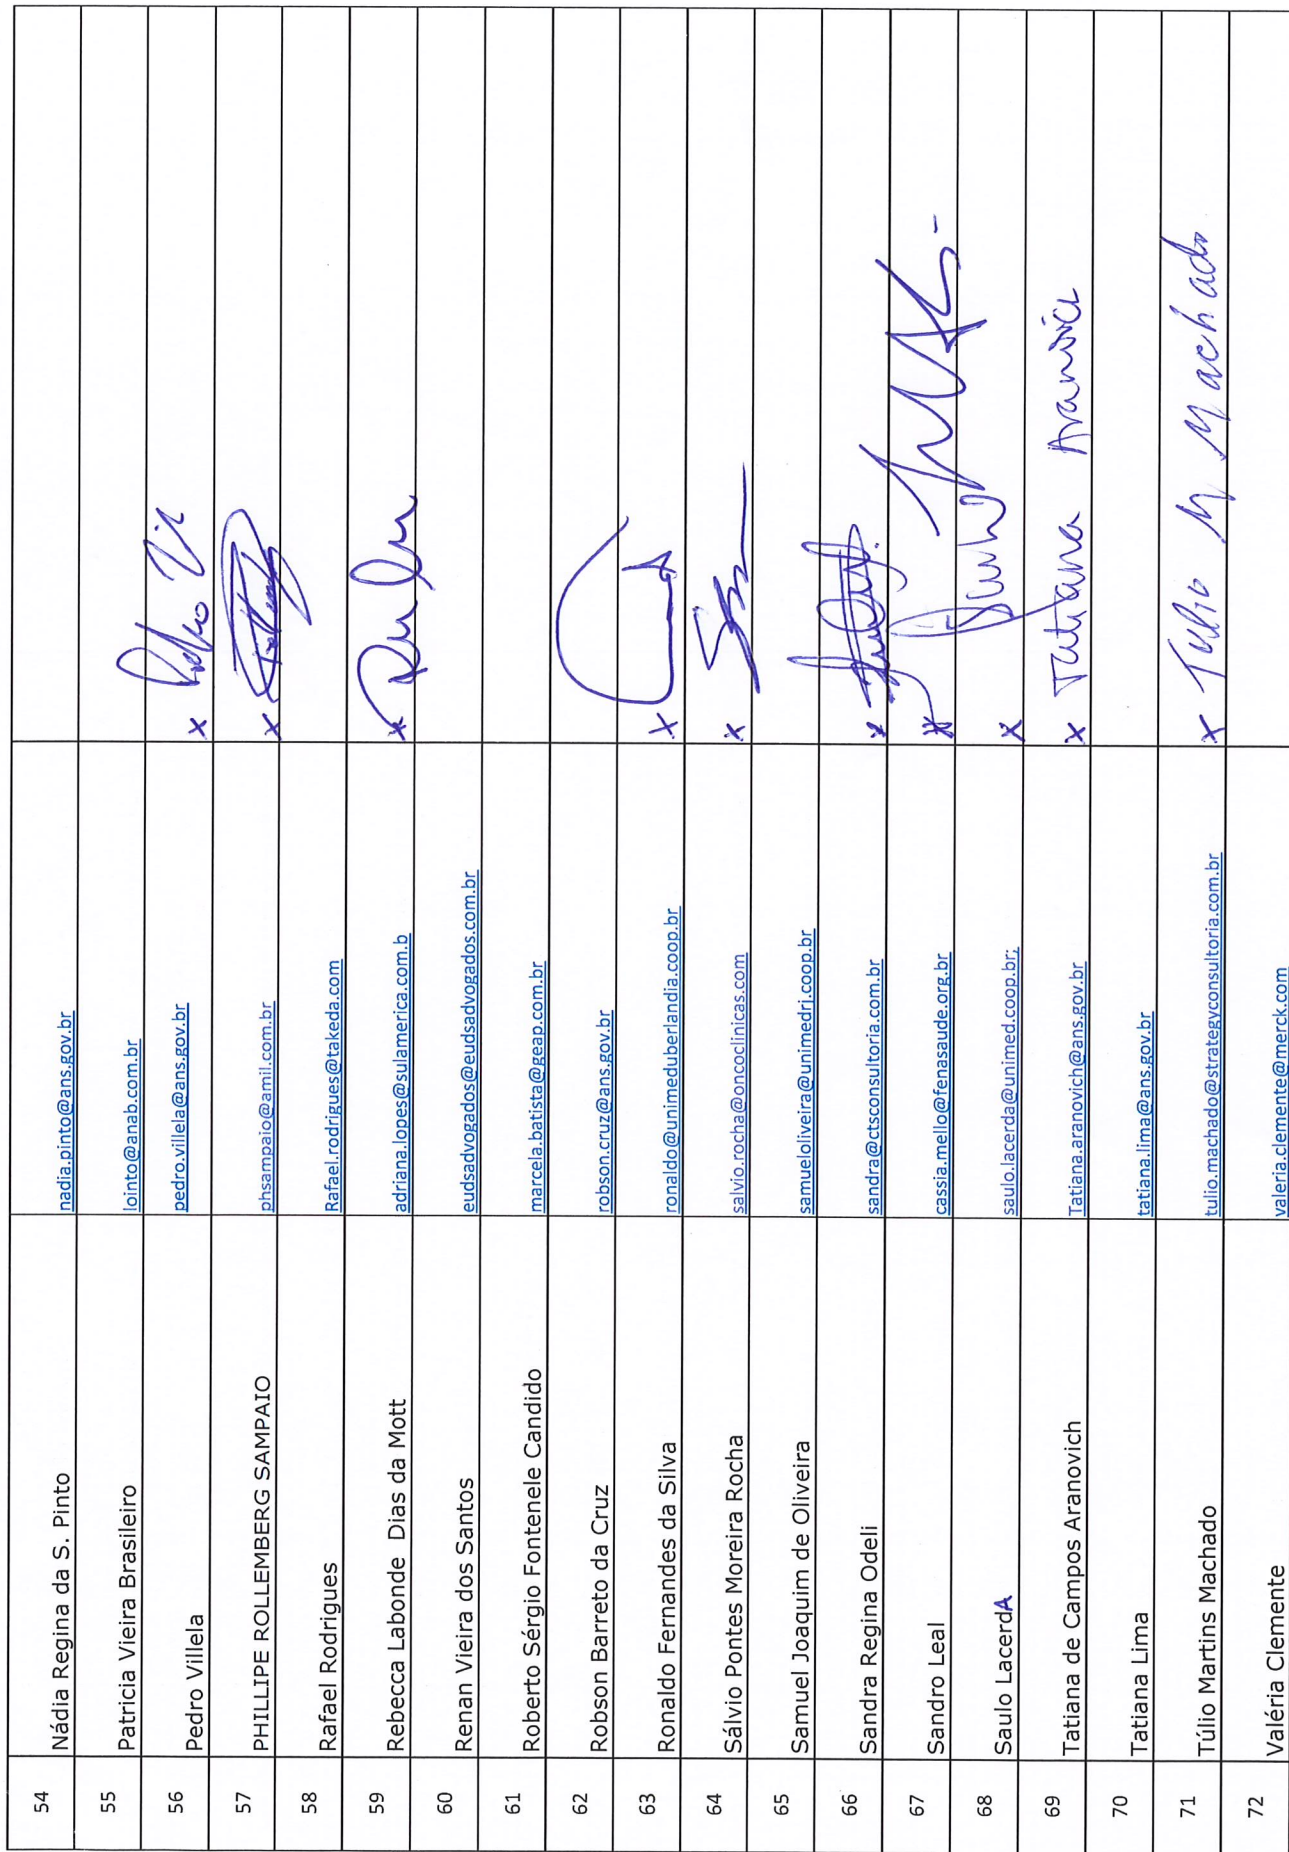 54 Nádia Regina da S. Pinto nadia.pinto@ans.gov.br
55 Patricia Vieira Brasileiro lointo@anab.com.br
56 Pedro Villela pedro.villela@ans.gov.br x Pedro
57 PHILLIPE ROLLEMBERG SAMPAIO phsampaio@amil.com.br x
58 Rafael Rodrigues Rafael.rodrigues@takeda.com
59 Rebecca Labonde Dias da Mott adriana.lopes@sulamerica.com.b x
60 Renan Vieira dos Santos eudsadvogados@eudsadvogados.com.br
61 Roberto Sérgio Fontenele Candido marcela.batista@geap.com.br
62 Robson Barreto da Cruz robson.cruz@ans.gov.br
63 Ronaldo Fernandes da Silva ronaldo@unimeduberlandia.coop.br x
64 Sálvio Pontes Moreira Rocha salvio.rocha@oncoclinicas.com x
65 Samuel Joaquim de Oliveira samueloliveira@unimedrj.coop.br
66 Sandra Regina Odeli sandra@ctsconsultoria.com.br x
67 Sandro Leal cassia.mello@fenasaude.org.br x
68 Saulo LacerdA saulo.lacerda@unimed.coop.br; x
69 Tatiana de Campos Aranovich Tatiana.aranovich@ans.gov.br x Tatiana Aranovich
70 Tatiana Lima tatiana.lima@ans.gov.br
71 Túlio Martins Machado tulio.machado@strategyconsultoria.com.br x Tulio M Machado
72 Valéria Clemente valeria.clemente@merck.com